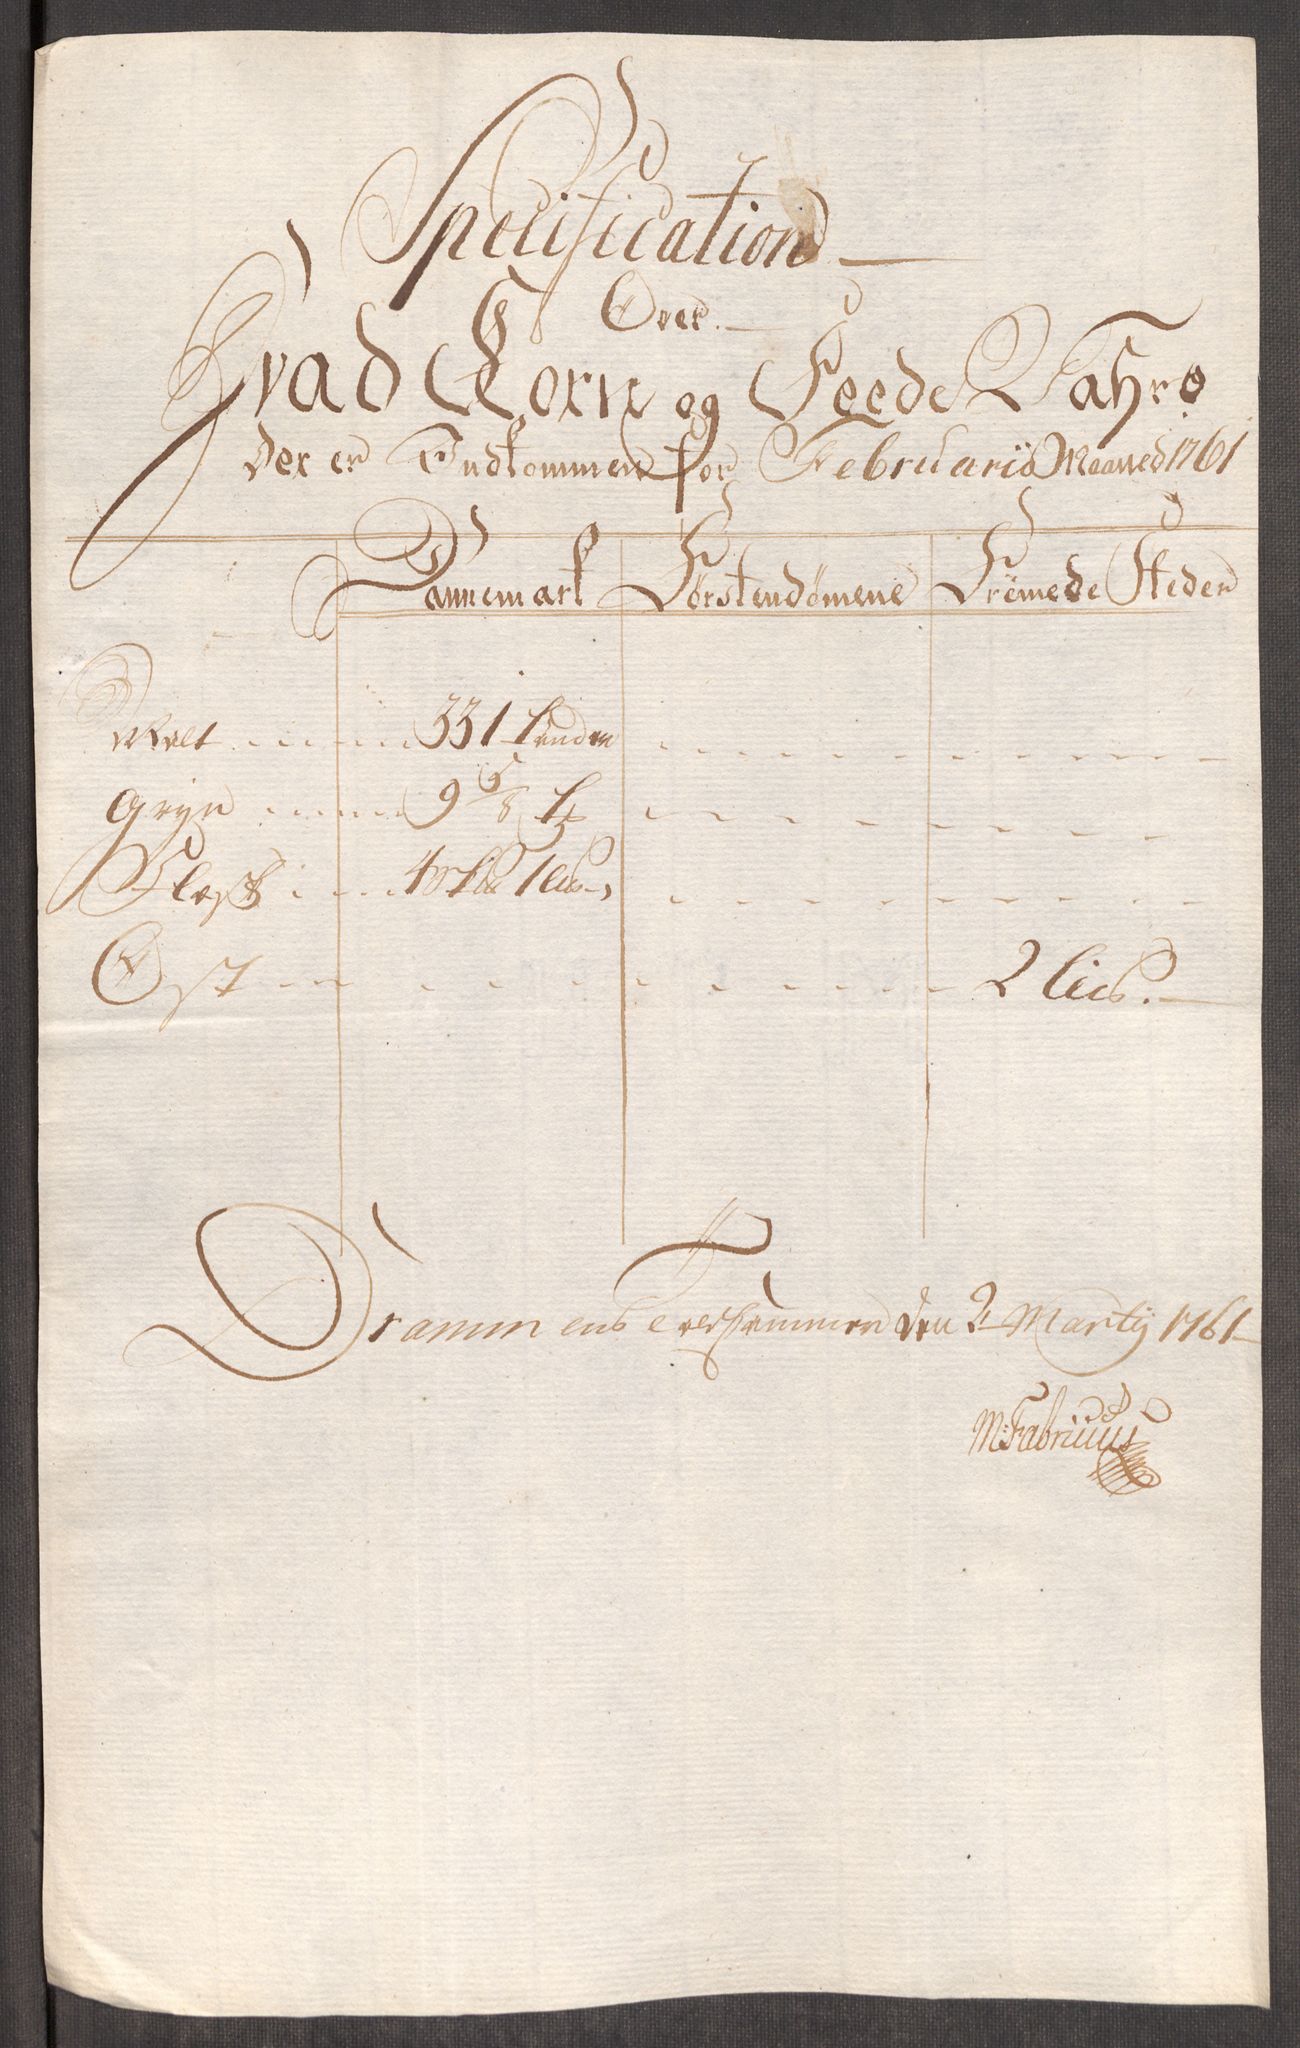 Specification
Over
Hvad Korn og Feede Vahre
der er Indkommen for Februarij Maaned 1761
Dannemark Førstendømene Fremede Steder
Malt 331 tønder
Gryn 9 5/8 tr
Flesk 1 Lis
Ost 2 Lis.
Drammens den 2 Martij 1761
M: Fabricius